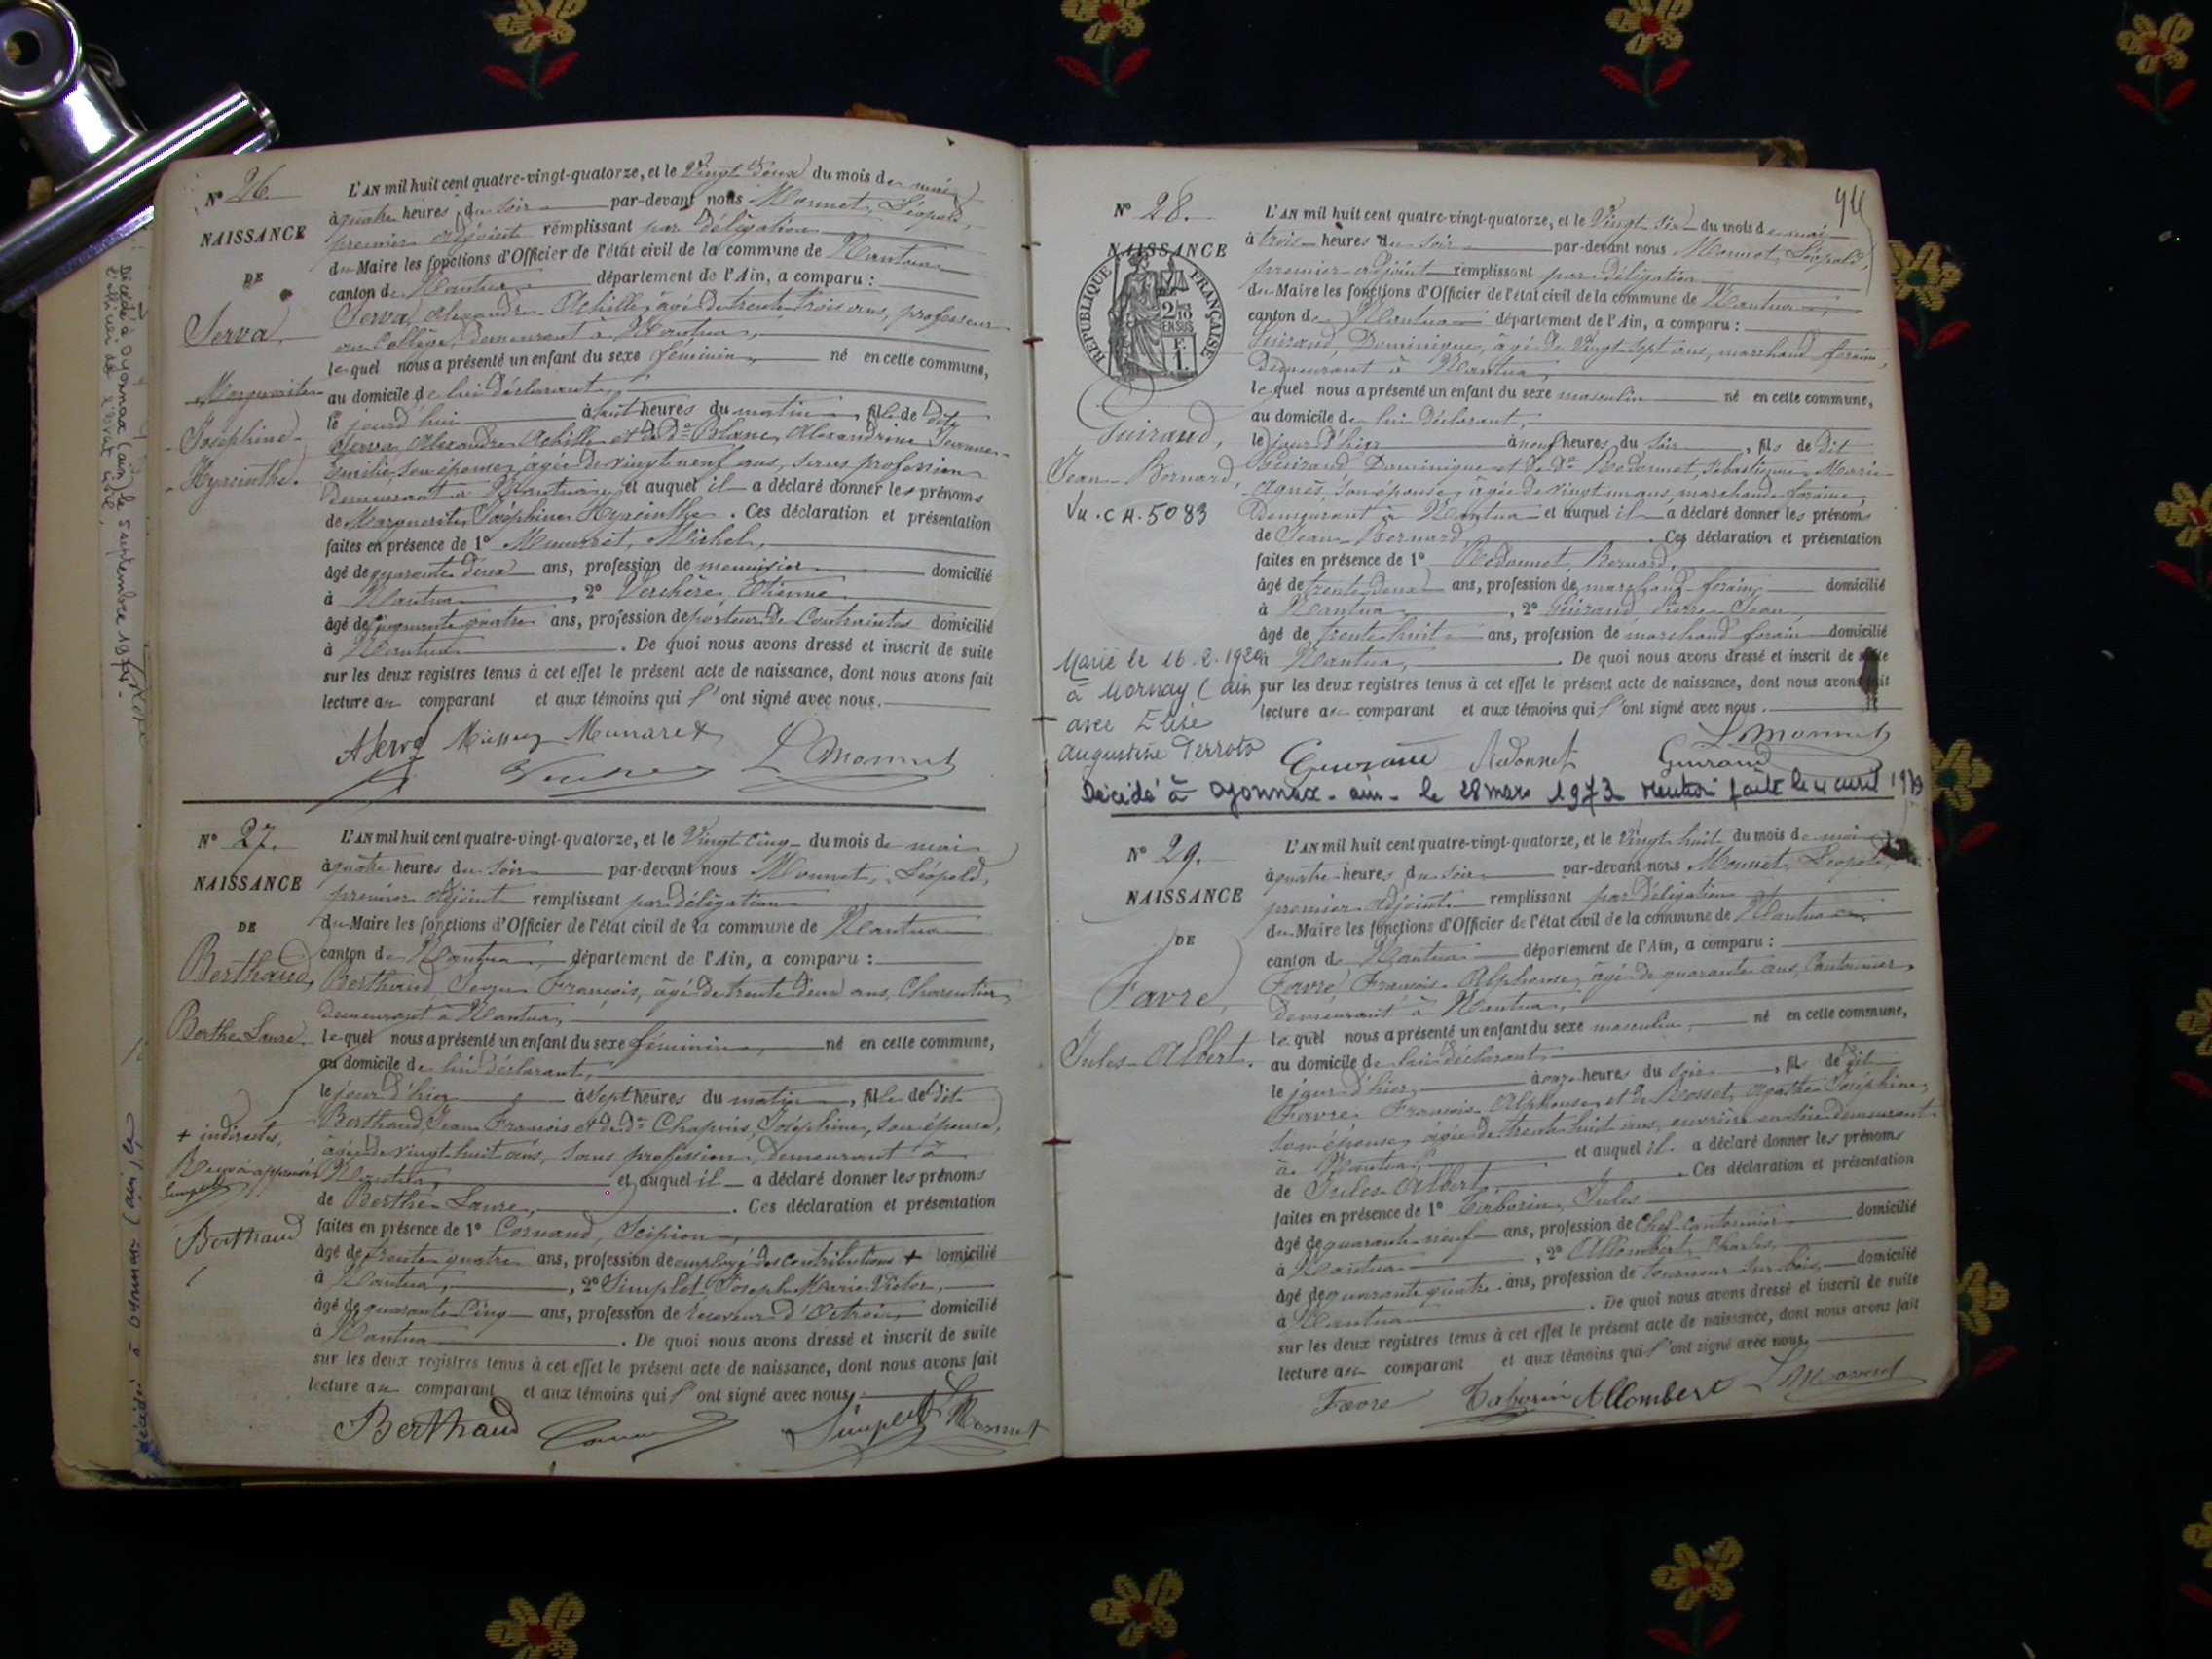 N° 26.
NAISSANCE
DE
Serva
Marguerite
Joséphine
Hyacinthe.
L'AN mil huit cent quatre-vingt-quatorze, et le Vingt deux du mois de mai
à quatre heures du soir par-devant nous Monnet, Léopold,
premier adjoint remplissant par délégation
du Maire les fonctions d'Officier de l'état civil de la commune de Nantua
canton de Nantua département de l'Ain, a comparu :
Serva Alexandre Achille, âgé de trente trois ans, professeur
au Collège, demeurant à Nantua,
lequel nous a présenté un enfant du sexe féminin, né en cette commune,
au domicile de lui déclarant,
le jourd'hui à huit heures du matin, fille de dit
Serva Alexandre Achille et de De Blanc, Alexandrine Jeanne
Emélie, son épouse, âgée de vingt neuf ans, sans profession
demeurant à Nantua, et auquel il a déclaré donner les prénoms
de Marguerite Joséphine Hyacinthe. Ces déclaration et présentation
faites en présence de 1° Munaret, Michel,
âgé de quarante deux ans, profession de menuisier domicilié
à Nantua, 2° Verchère Etienne
âgé de cinquante quatre ans, profession de porteur de Contraintes domicilié
à Nantua. De quoi nous avons dressé et inscrit de suite
sur les deux registres tenus à cet effet le présent acte de naissance, dont nous avons fait
lecture au comparant et aux témoins qui l'ont signé avec nous.
AServa Munaret L Monnet
N° 27.
NAISSANCE
DE
Berthaud,
Berthe Laure.
+ indirectes,
Renvoi approuvé
Berthaud
L'AN mil huit cent quatre-vingt-quatorze, et le Vingt cinq du mois de mai
à quatre heures du soir par-devant nous Monnet, Léopold,
premier adjoint remplissant par délégation
du Maire les fonctions d'Officier de l'état civil de la commune de Nantua
canton de Nantua département de l'Ain, a comparu :
Berthaud Jean François, âgé de trente deux ans, Charpentier,
demeurant à Nantua,
lequel nous a présenté un enfant du sexe féminin, né en cette commune,
au domicile de lui déclarant,
le jour d'hier à sept heures du matin, fille de dit
Berthaud, Jean François et de De Chapuis, Joséphine, son épouse,
âgée de vingt huit ans, sans profession, demeurant à
Nantua, et auquel il a déclaré donner les prénoms
de Berthe Laure, Ces déclaration et présentation
faites en présence de 1° Cornand, Scipion,
âgé de trente quatre ans, profession de employé des contributions + domicilié
à Nantua, 2° Simplet Joseph Marie Victor,
âgé de quarante cinq ans, profession de Receveur d'Octroi, domicilié
à Nantua. De quoi nous avons dressé et inscrit de suite
sur les deux registres tenus à cet effet le présent acte de naissance, dont nous avons fait
lecture au comparant et aux témoins qui l'ont signé avec nous.
Berthaud Simplet L Monnet
94
N° 28.
NAISSANCE
REPUBLIQUE FRANÇAISE
2/10 EN SUS
F. 1.
Guiraud,
Jean Bernard,
Vu. C H. 5083
L'AN mil huit cent quatre-vingt-quatorze, et le Vingt six du mois de mai
à trois heures du soir par-devant nous Monnet, Léopold,
premier adjoint remplissant par délégation
du Maire les fonctions d'Officier de l'état civil de la commune de Nantua,
canton de Nantua département de l'Ain, a comparu :
Guiraud, Dominique, âgé de Vingt sept ans, marchand forain,
demeurant à Nantua,
lequel nous a présenté un enfant du sexe masculin né en cette commune,
au domicile de lui déclarant,
le jour d'hier à neuf heures du soir, fils de dit
Guiraud Dominique et de De Redonnet, Sébastienne Marie
Agnès, son épouse, âgée de vingt un ans, marchande foraine,
demeurant à Nantua et auquel il a déclaré donner les prénoms
de Jean Bernard Ces déclaration et présentation
faites en présence de 1° Redonnet, Bernard,
âgé de trente deux ans, profession de marchand forain domicilié
à Nantua, 2° Guiraud Pierre Jean
âgé de trente huit ans, profession de marchand forain domicilié
à Nantua, De quoi nous avons dressé et inscrit de suite
sur les deux registres tenus à cet effet le présent acte de naissance, dont nous avons fait
lecture au comparant et aux témoins qui l'ont signé avec nous.
Marié le 16.2.1920
à Mornay (ain)
avec Elise
Augustine Perrot
Guiraud Redonnet Guiraud L Monnet
Décédé à Oyonnax - ain - le 28 mars 1973 Mention faite le 4 avril 1973
N° 29.
NAISSANCE
DE
Favre,
Jules-Albert.
L'AN mil huit cent quatre-vingt-quatorze, et le Vingt huit du mois de mai
à quatre heures du soir par-devant nous Monnet, Léopold,
premier adjoint remplissant par délégation
du Maire les fonctions d'Officier de l'état civil de la commune de Nantua
canton de Nantua département de l'Ain, a comparu :
Favre François Alphonse, âgé de quarante ans, Cantonnier,
demeurant à Nantua,
lequel nous a présenté un enfant du sexe masculin né en cette commune,
au domicile de lui déclarant
le jour d'hier, à onze heures du soir, fils de dit
Favre François Alphonse, et de Brosset, Agathe Joséphine,
son épouse, âgée de trente huit ans, ouvrière en soie demeurant
à Nantua, et auquel il a déclaré donner les prénoms
de Jules Albert. Ces déclaration et présentation
faites en présence de 1° Taborin, Jules
âgé de quarante neuf ans, profession de Chef Cantonnier domicilié
à Nantua, 2° Allombert, Charles,
âgé de quarante quatre ans, profession de tourneur sur bois, domicilié
à Nantua. De quoi nous avons dressé et inscrit de suite
sur les deux registres tenus à cet effet le présent acte de naissance, dont nous avons fait
lecture au comparant et aux témoins qui l'ont signé avec nous.
Favre Taborin Allombert L Monnet
Décédé à Oyonnax (ain) le 5 septembre 1974.
décédé à Oyonnax (ain) le